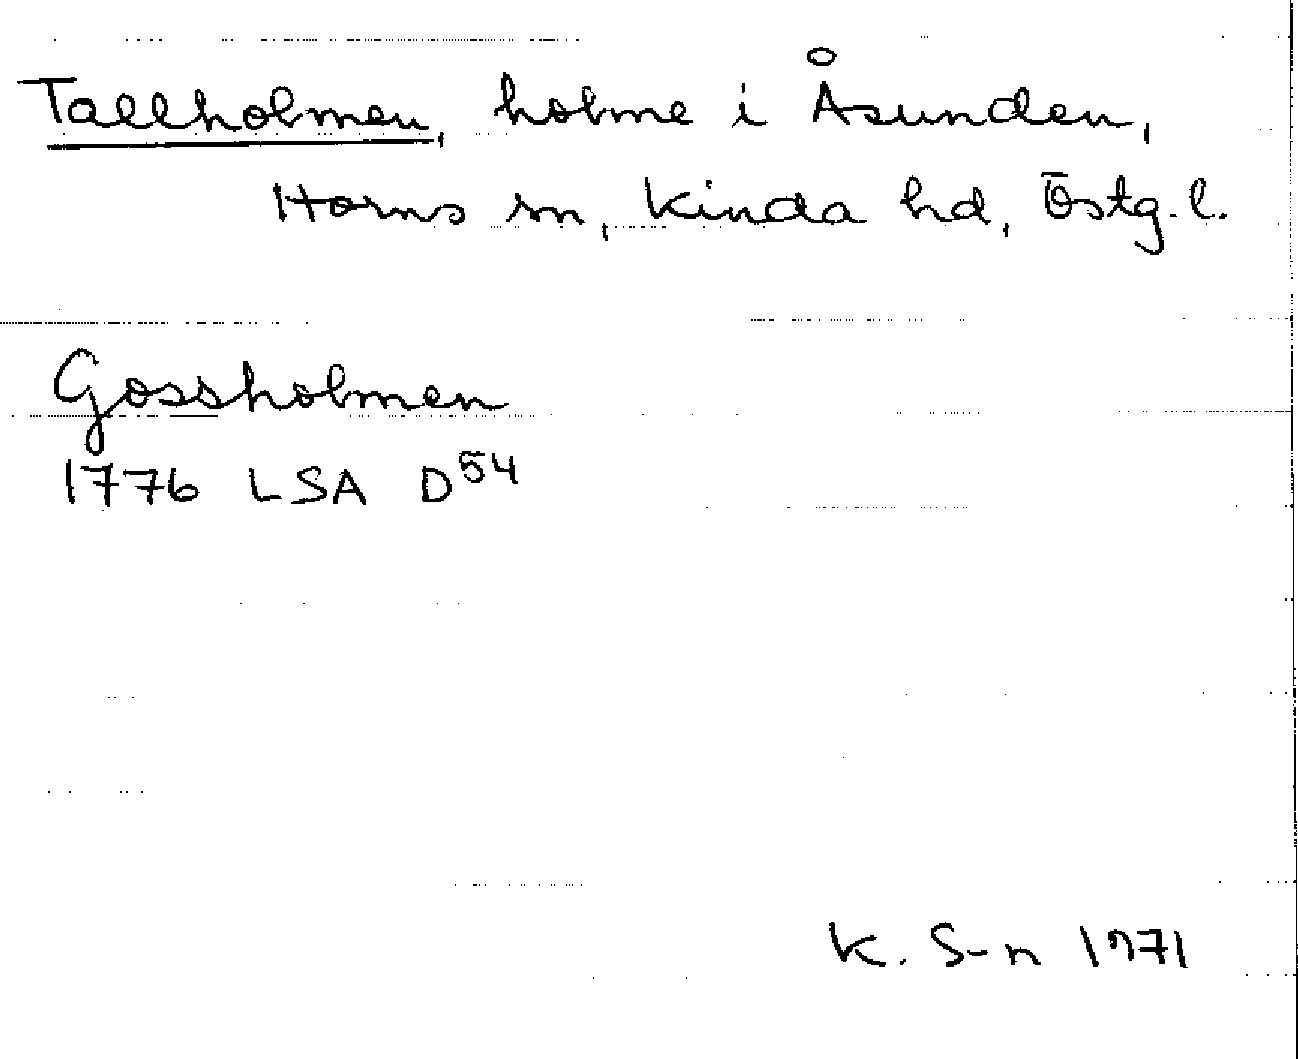 Tallholmen, holme i Åsunden,
Horns sn, Kinda hd, Östg. l.
Gossholmen
1776 LSA D54
K. S-n 1971